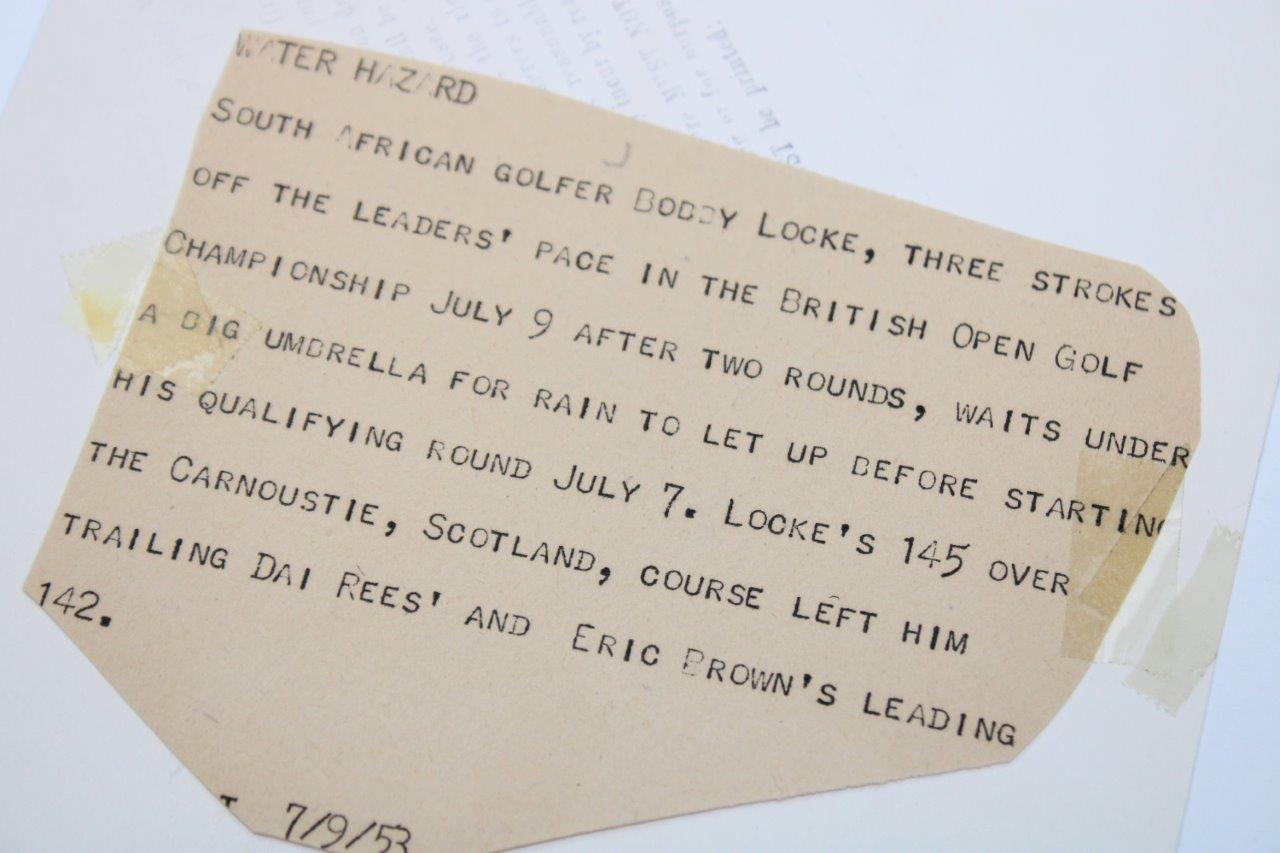 WATER HAZARD
SOUTH AFRICAN GOLFER BOBBY LOCKE, THREE STROKES
OFF THE LEADERS' PACE IN THE BRITISH OPEN GOLF
CHAMPIONSHIP JULY 9 AFTER TWO ROUNDS, WAITS UNDER
A BIG UMBRELLA FOR RAIN TO LET UP BEFORE STARTING
HIS QUALIFYING ROUND JULY 7. LOCKE'S 145 OVER
THE CARNOUSTIE, SCOTLAND, COURSE LEFT HIM
TRAILING DAI REES' AND ERIC BROWN'S LEADING
142.
7/9/53
MUST NOT
ST be printed.